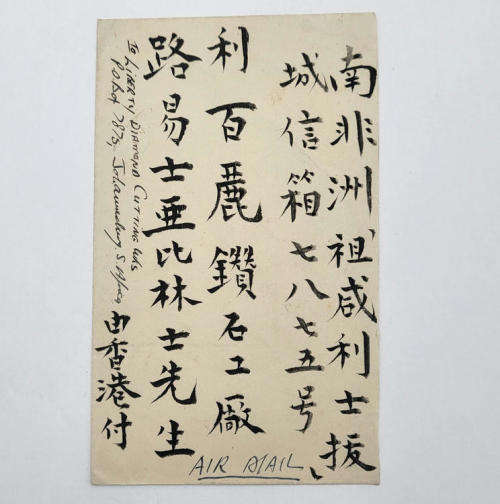 南非洲祖咸利士拔
城信箱七八七五号
利百麗鑽石工廠
路易士亜比林士先生
由香港付
To LIBERTY DIAMOND CUTTING WKS
P.O BOX 7875, Johannesburg S Africa
AIR MAIL